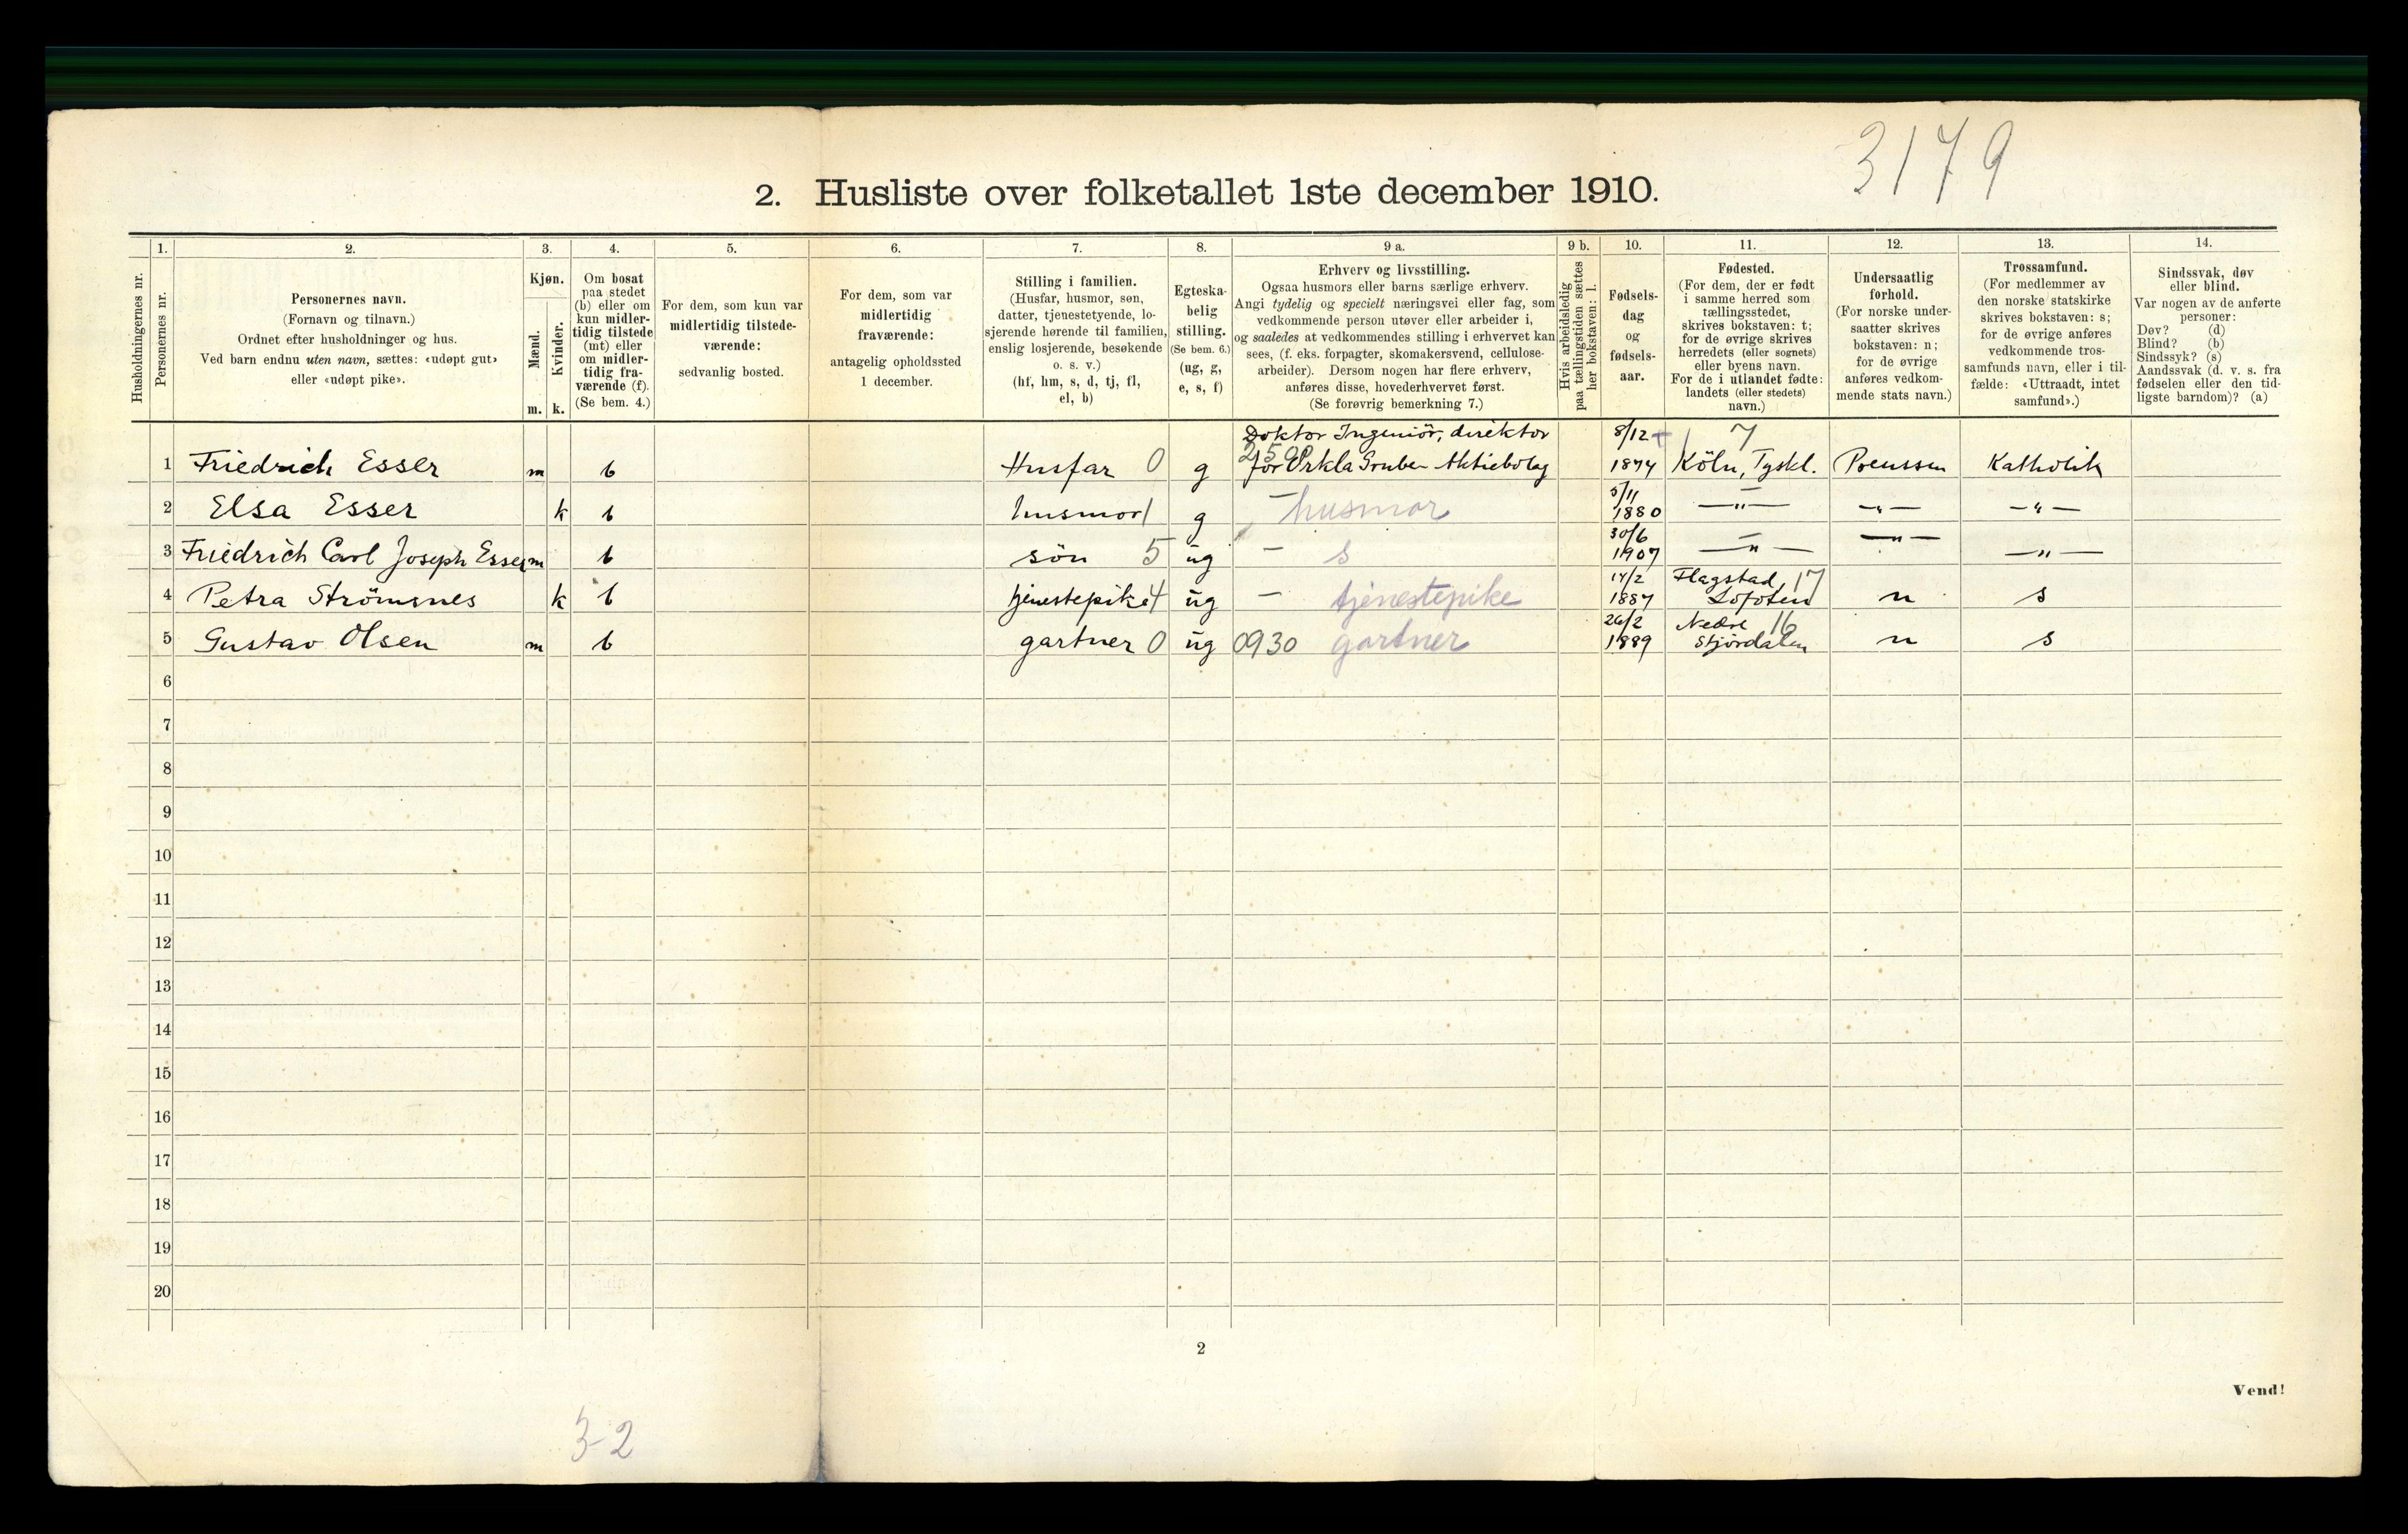 3179
2. Husliste over folketallet 1ste december 1910.
Husholdningernes nr.
1.
Personernes nr.
2.
Personernes navn.
(Fornavn og tilnavn.)
Ordnet efter husholdninger og hus.
Ved barn endnu uten navn, sættes: «udøpt gut»
eller «udøpt pike».
3.
Kjøn.
Mænd.
Kvinder.
m. k.
4.
Om bosat
paa stedet
(b) eller om
kun midler-
tidig tilstede
(mt) eller
om midler-
tidig fra-
værende (f).
(Se bem. 4.)
5.
For dem, som kun var
midlertidig tilstede-
værende:
sedvanlig bosted.
6.
For dem, som var
midlertidig
fraværende:
antagelig opholdssted
1 december.
7.
Stilling i familien.
(Husfar, husmor, søn,
datter, tjenestetyende, lo-
sjerende hørende til familien,
enslig losjerende, besøkende
o. s. v.)
(hf, hm, s, d, tj, fl,
el, b)
8.
Egteska-
belig
stilling.
(Se bem. 6.)
(ug, g,
e, s, f)
9 a.
Erhverv og livsstilling.
Ogsaa husmors eller barns særlige erhverv.
Angi tydelig og specielt næringsvei eller fag, som
vedkommende person utøver eller arbeider i,
og saaledes at vedkommendes stilling i erhvervet kan
sees, (f. eks. forpagter, skomakersvend, cellulose-
arbeider). Dersom nogen har flere erhverv,
anføres disse, hovederhvervet først.
(Se forøvrig bemerkning 7.)
9 b.
Hvis arbeidsledig
paa tællingstiden sættes
her bokstaven: l.
10.
Fødsels-
dag
og
fødsels-
aar.
11.
Fødested.
(For dem, der er født
i samme herred som
tællingsstedet,
skrives bokstaven: t;
for de øvrige skrives
herredets (eller sognets)
eller byens navn.
For de i utlandet fødte:
landets (eller stedets)
navn.)
12.
Undersaatlig
forhold.
(For norske under-
saatter skrives
bokstaven: n;
for de øvrige
anføres vedkom-
mende stats navn.)
13.
Trossamfund.
(For medlemmer av
den norske statskirke
skrives bokstaven: s;
for de øvrige anføres
vedkommende tros-
samfunds navn, eller i til-
fælde: «Uttraadt, intet
samfund».)
14.
Sindssvak, døv
eller blind.
Var nogen av de anførte
personer:
Døv? (d)
Blind? (b)
Sindssyk? (s)
Aandssvak (d. v. s. fra
fødselen eller den tid-
ligste barndom)? (a)
Doktor Ingeniör, direktor 8/12 7
1 Friedrich Esser m b Husfar 0 g for Orkla Grube-Aktiebolag 1874 Köln, Tyskl. Preussen Katholik
5/11
2 Elsa Esser k b husmor 1 g — husmor 1880 —"— —"— —"—
30/6
3 Friedrich Carl Joseph Esser m b sön 5 ug — s 1907 —"— —"— —"—
14/2 Flagstad, 17
4 Petra Strömsnes k b tjenestepike 4 ug — tjenestepike 1887 Lofoten n s
26/2 Nedre 16
5 Gustav Olsen m b gartner 0 ug 0930 gartner 1889 Stjördalen n s
6
7
8
9
10
11
12
13
14
15
16
17
18
19
20
2
Vend!
3-2